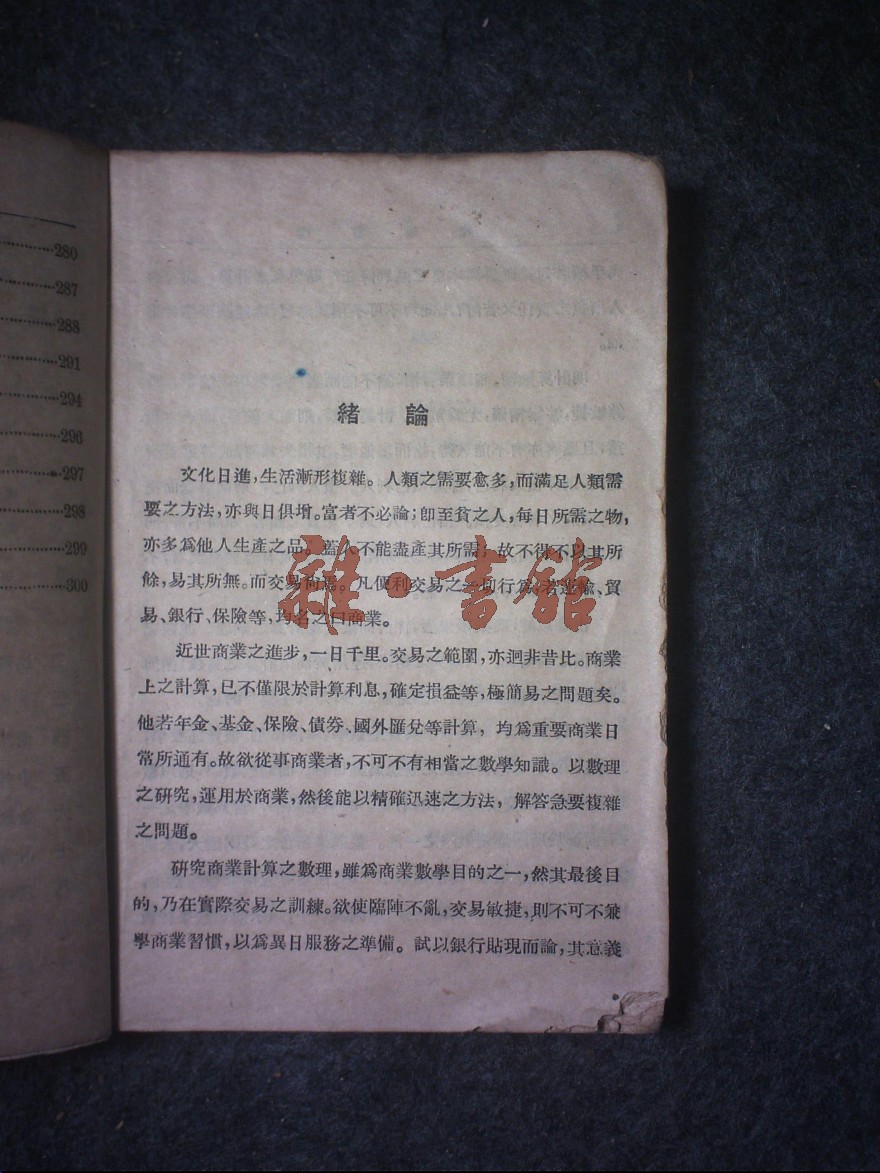 280
287
288
291
294
296
297
298
299
300
緒論
文化日進，生活漸形複雜。人類之需要愈多，而滿足人類需
要之方法，亦與日俱增。富者不必論；卽至貧之人，每日所需之物，
亦多爲他人生產之品。蓋人不能盡產其所需，故不得不以其所
餘，易其所無。而交易尚焉。凡便利交易之一切行爲，若運輸、貿
易、銀行、保險等，均名之曰商業。
近世商業之進步，一日千里。交易之範圍，亦迴非昔比。商業
上之計算，已不僅限於計算利息，確定損益等，極簡易之問題矣。
他若年金、基金、保險、債券、國外匯兌等計算，均爲重要商業日
常所通有。故欲從事商業者，不可不有相當之數學知識。以數理
之硏究，運用於商業，然後能以精確迅速之方法，解答急要複雜
之問題。
硏究商業計算之數理，雖爲商業數學目的之一，然其最後目
的，乃在實際交易之訓練。欲使臨陣不亂，交易敏捷，則不可不兼
學商業習慣，以爲異日服務之準備。試以銀行貼現而論，其意義
雜·書館